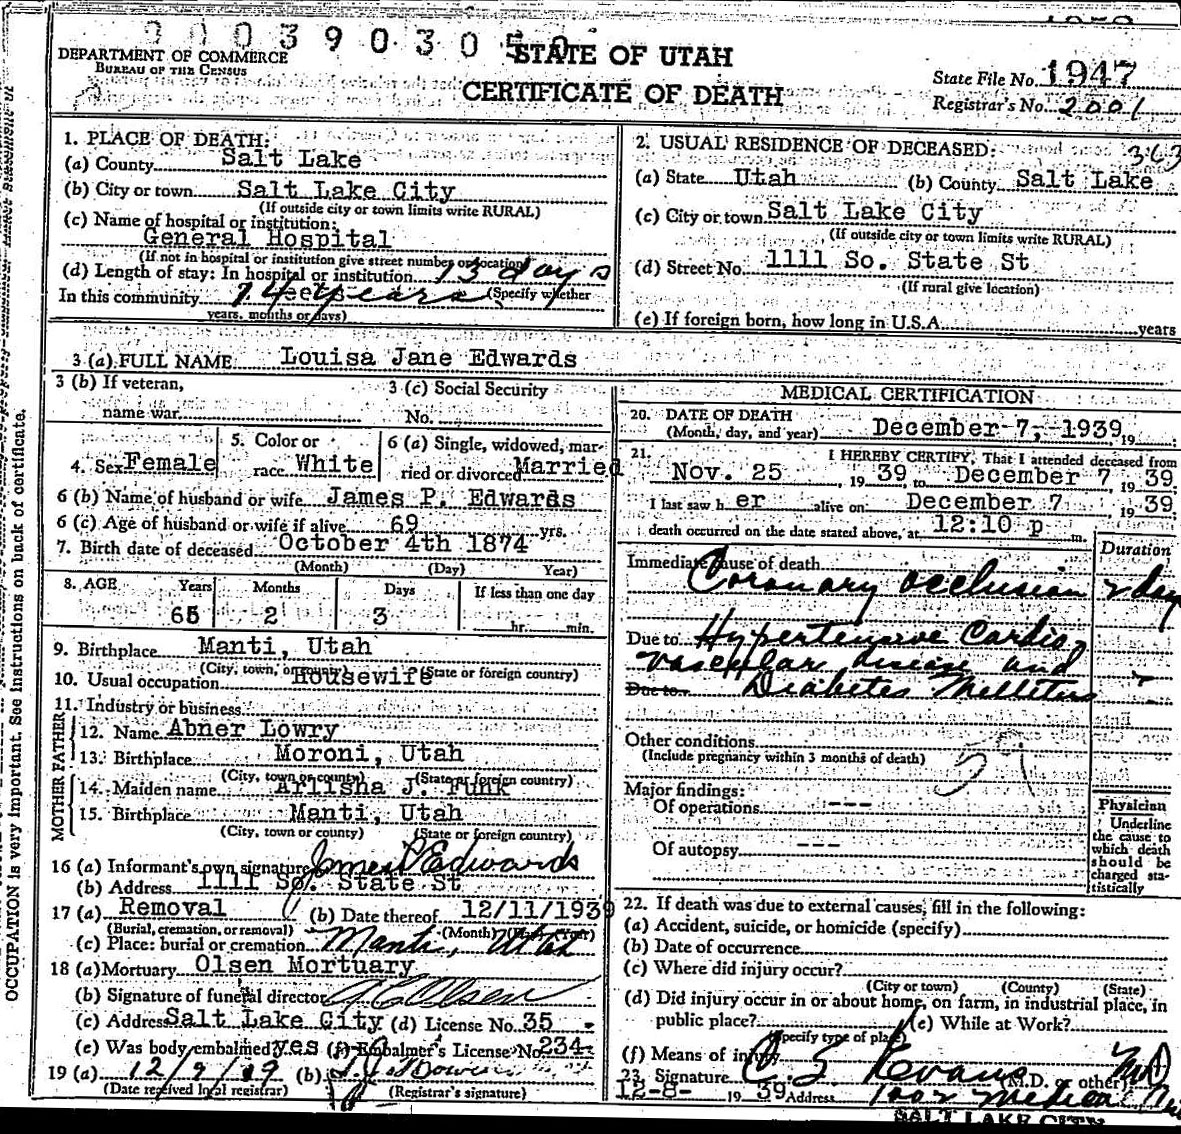 0003903050
DEPARTMENT OF COMMERCE
BUREAU OF THE CENSUS
STATE OF UTAH
CERTIFICATE OF DEATH
State File No. 1947
Registrar's No. 2001
363
1. PLACE OF DEATH:
(a) County Salt Lake
(b) City or town Salt Lake City
(If outside city or town limits write RURAL)
(c) Name of hospital or institution:
General Hospital
(If not in hospital or institution give street number or location)
(d) Length of stay: In hospital or institution 13 days
In this community years (Specify whether
years, months or days)
2. USUAL RESIDENCE OF DECEASED:
(a) State Utah (b) County Salt Lake
(c) City or town Salt Lake City
(If outside city or town limits write RURAL)
(d) Street No. 1111 So. State St
(If rural give location)
(e) If foreign born, how long in U.S.A. years
3 (a) FULL NAME Louisa Jane Edwards
3 (b) If veteran,
name war
3 (c) Social Security
No.
4. Sex Female
5. Color or
race White
6 (a) Single, widowed, mar-
ried or divorced Married
6 (b) Name of husband or wife James P. Edwards
6 (c) Age of husband or wife if alive 69 yrs.
7. Birth date of deceased October 4th 1874
(Month) (Day) Year)
8. AGE Years Months Days If less than one day
65 2 3 hr. min.
9. Birthplace Manti, Utah
(City, town, or county) (State or foreign country)
10. Usual occupation Housewife
11. Industry or business
FATHER
12. Name Abner Lowry
13. Birthplace Moroni, Utah
(City, town or county) (State or foreign country)
MOTHER
14. Maiden name Arlisha J. Funk
15. Birthplace Manti, Utah
(City, town or county) (State or foreign country)
16 (a) Informant's own signature James P Edwards
(b) Address 1111 So. State St
17 (a) Removal (b) Date thereof 12/11/1939
(Burial, cremation, or removal) (Month) (Day) (Year)
(c) Place: burial or cremation Manti, Utah
18 (a) Mortuary Olsen Mortuary
(b) Signature of funeral director Olsen
(c) Address Salt Lake City (d) License No. 35
(e) Was body embalmed yes (f) Embalmer's License No. 234
19 (a) 12/9/39 (b)
(Date received local registrar) (Registrar's signature)
MEDICAL CERTIFICATION
20. DATE OF DEATH
(Month, day, and year) December 7, 1939 19
21. I HEREBY CERTIFY, That I attended deceased from
Nov. 25, 19 39 to December 7 19 39.
I last saw h er alive on December 7 19 39.
death occurred on the date stated above, at 12:10 p m.
Duration
Immediate cause of death
Coronary occlusion 2 days
Due to Hypertensive Cardio-
vascular disease and
Due to Diabetes Mellitus
Other conditions
(Include pregnancy within 3 months of death)
Major findings:
Of operations ---
Of autopsy ---
Physician
Underline
the cause to
which death
should be
charged sta-
tistically
22. If death was due to external causes, fill in the following:
(a) Accident, suicide, or homicide (specify)
(b) Date of occurrence
(c) Where did injury occur?
(City or town) (County) (State)
(d) Did injury occur in or about home, on farm, in industrial place, in
public place? (e) While at Work?
(Specify type of place)
(f) Means of injury
23. Signature C. S. Evans (M.D. or other) MD
12-8- 19 39 Address
SALT LAKE CITY
OCCUPATION is very important. See instructions on back of certificate.